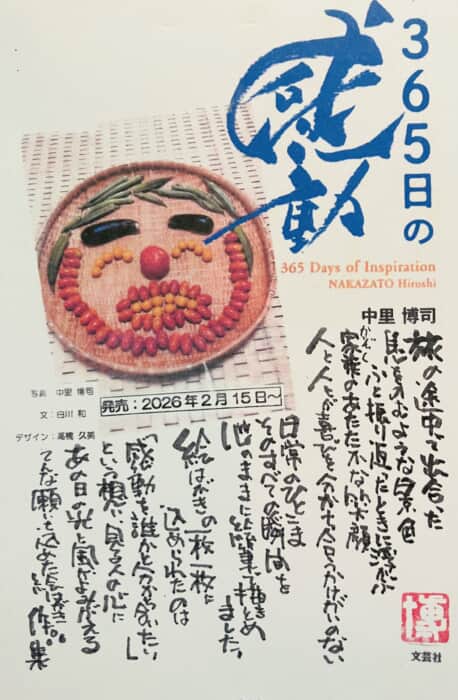 365日の
感動
365 Days of Inspiration
NAKAZATO Hiroshi
中里 博司
旅の途中で出合った
息をのむような景色
ふと振り返ったときに浮かぶ
かぞく
家族のあたたかな笑顔
人と人とが喜びを分かち合うかけがえのない
日常のひとこま
そのすべての瞬間を
心のままに絵筆で描きとめ
ました。
絵はがきの一枚一枚に
込められたのは
「感動を誰かと分かち合いたい」
という想い。見る人の心に
あの日の光と風がよみがえる
そんな願いを込めた絵はがき
作品集
写真 中里 博司
文:白川 和
デザイン:高橋 久美
発売:2026年2月15日~
博
文芸社